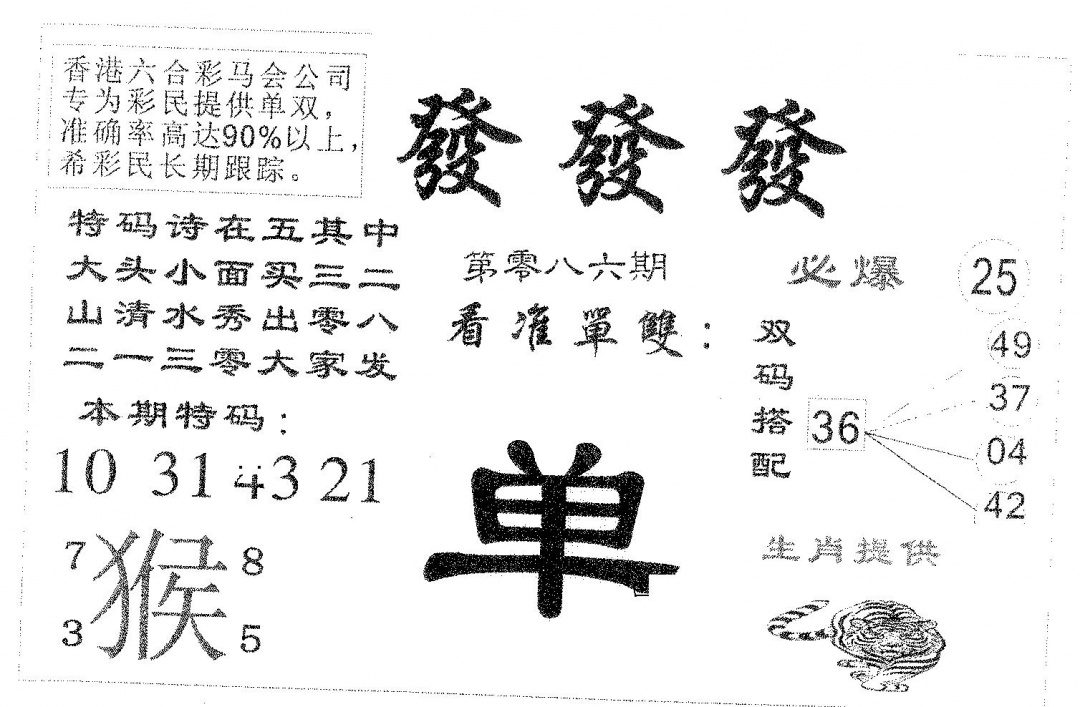 香港六合彩马会公司
专为彩民提供单双，
准确率高达90%以上，
希彩民长期跟踪。
發 發 發
特码诗在五其中
大头小面买三二
山清水秀出零八
二一三零大家发
本期特码：
10 31 43 21
7 猴 8
3 5
第零八六期
看准單雙：
单
必爆 25
双码搭配
36
49
37
04
42
生肖提供